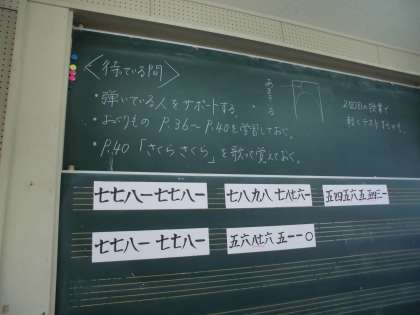 <待っている間>
・弾いている人をサポートする。
・おくりもの P.36〜P.40を学習しておく。
・P.40「さくらさくら」を歌って覚えておく。
2回目の授業で
軽くテストするです。
七七八一七七八一
七八九八 七八七六一
五四五六五五四三一
七七八一 七七八一
五六八七六 五一一〇